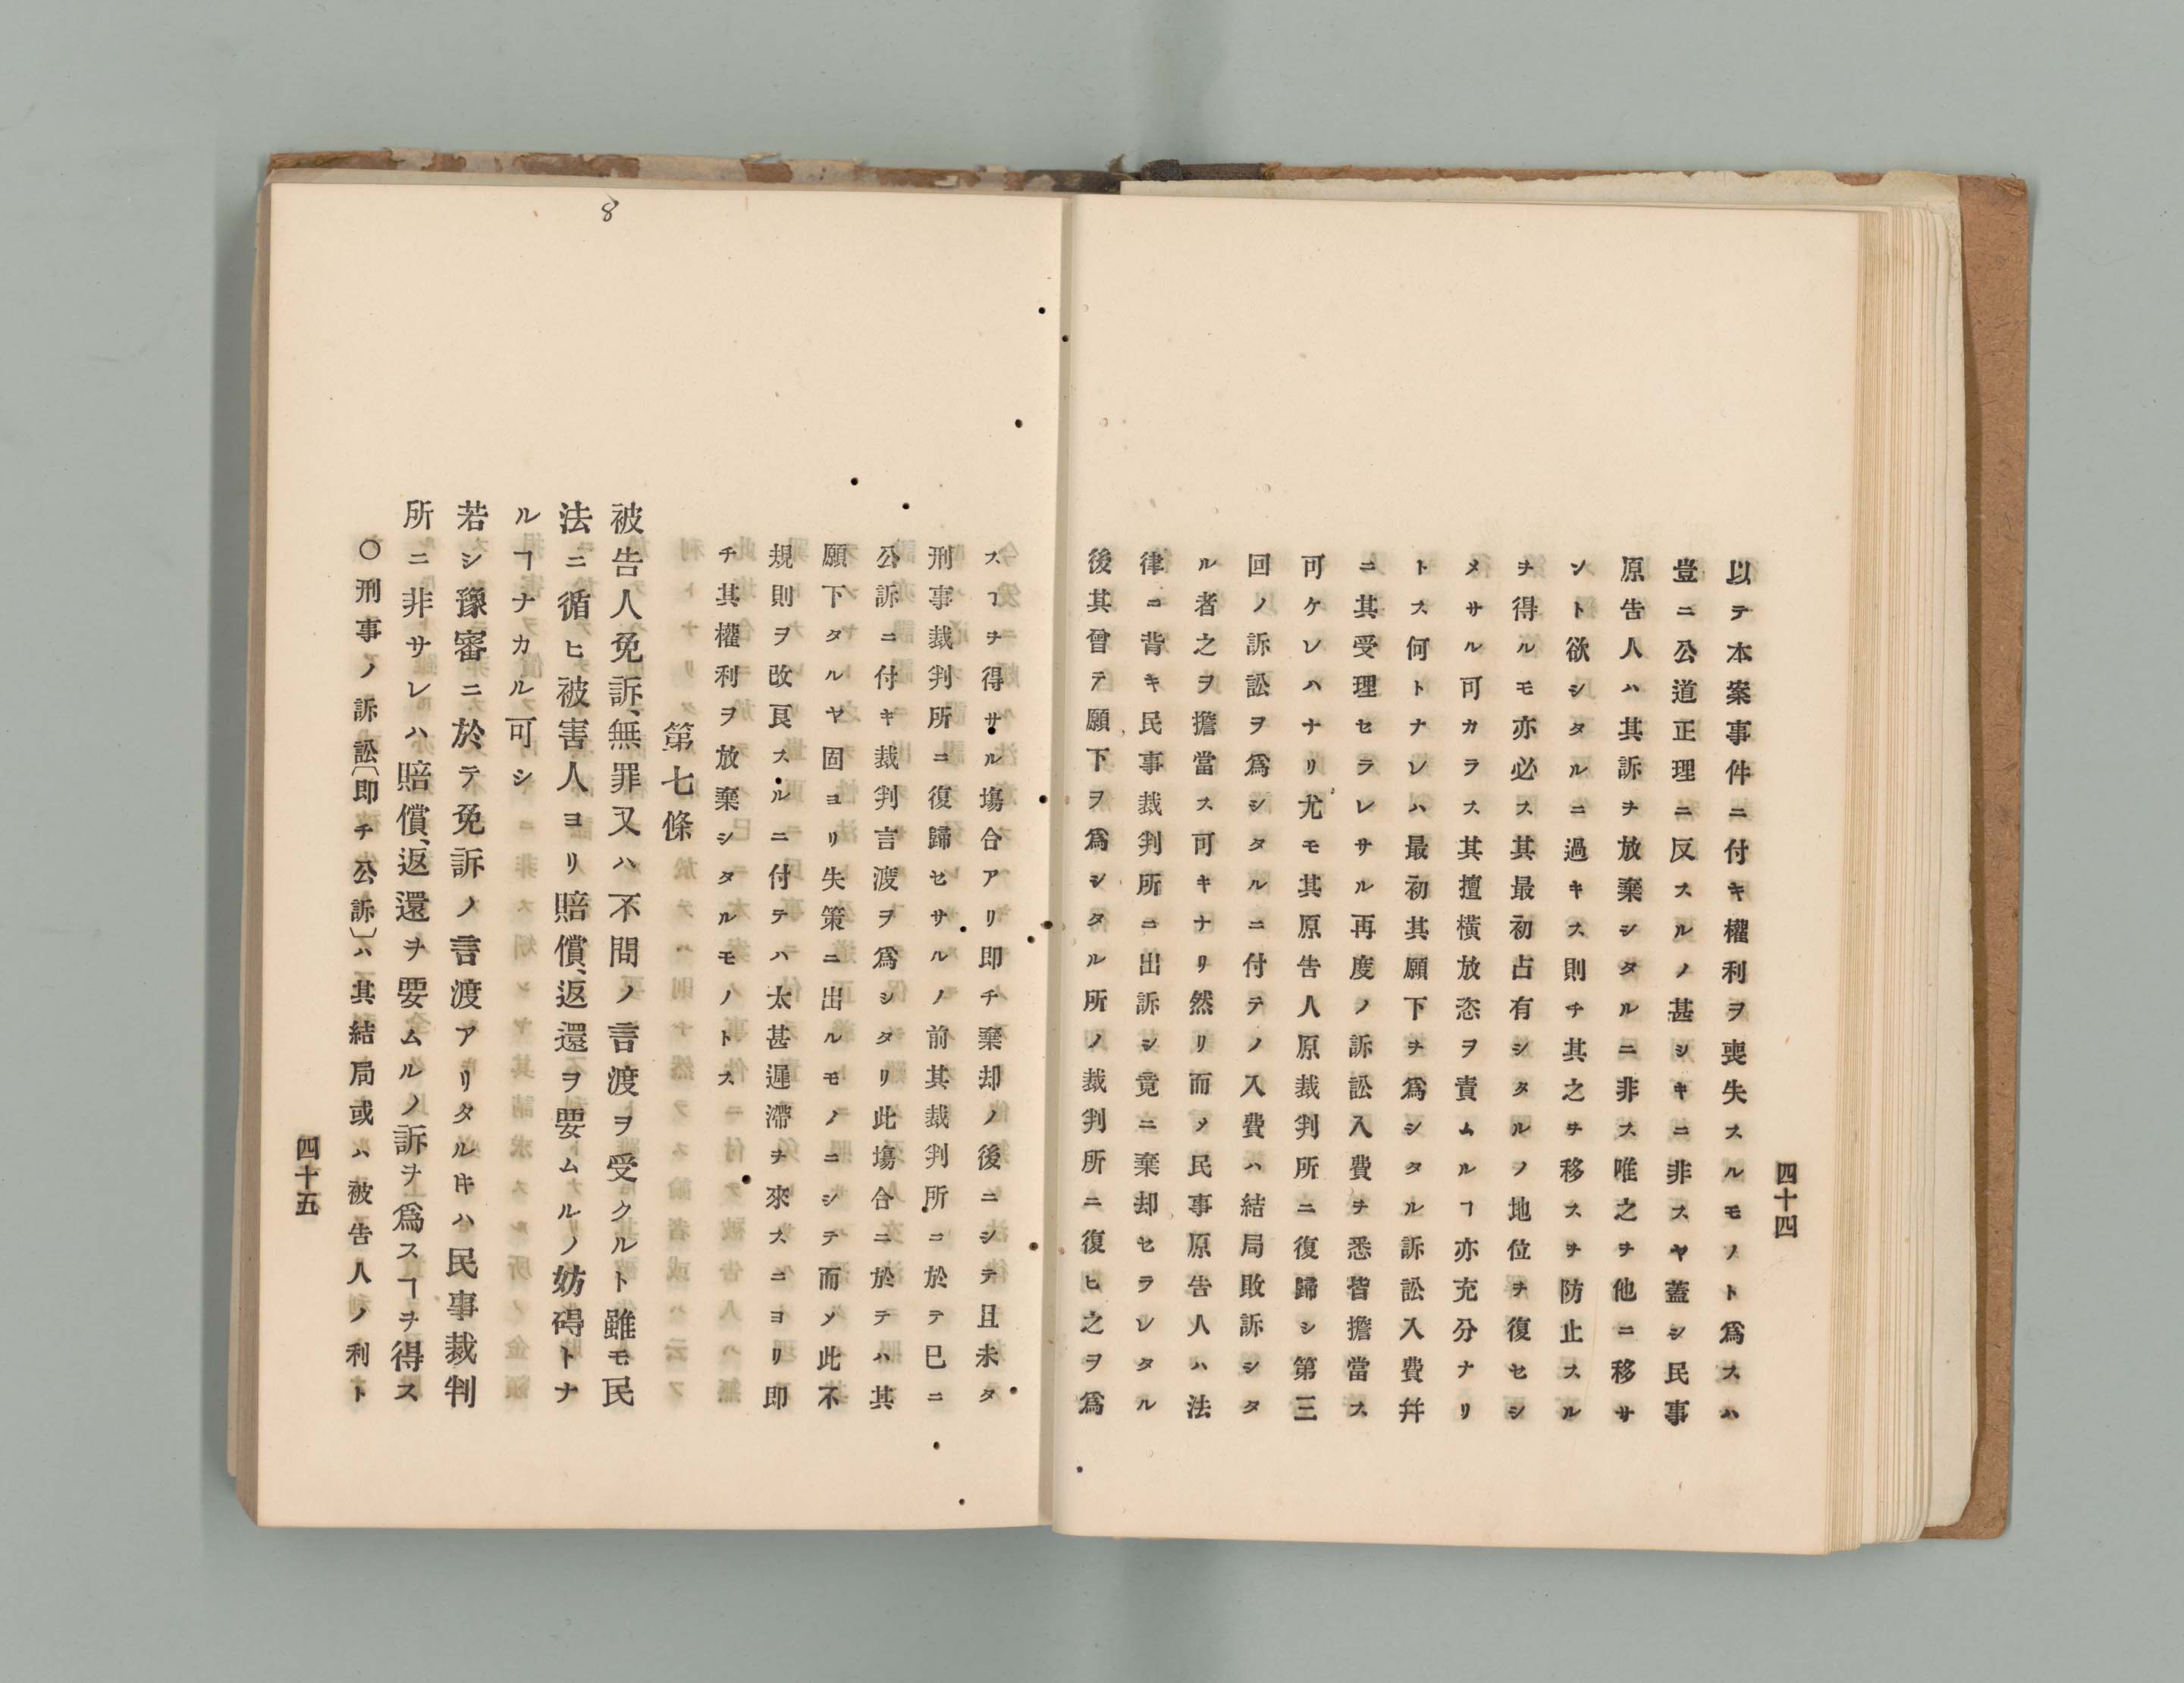 四十四
以テ本案事件ニ付キ權利ヲ喪失スルモノト爲スハ
豈ニ公道正理ニ反スルノ甚シキニ非スヤ蓋シ民事
原告人ハ其訴ヲ放棄シタルニ非ス唯之ヲ他ニ移サ
ント欲シタルニ過キス則チ其之ヲ移スヲ防止スル
ヲ得ルモ亦必ス其最初占有シタルノ地位ヲ復セシ
メサル可カラス其擅橫放恣ヲ責ムルヿ亦充分ナリ
トス何トナレハ最初其願下ヲ爲シタル訴訟入費幷
ニ其受理セラレサル再度ノ訴訟入費ヲ悉皆擔當ス
可ケレハナリ尤モ其原告人原裁判所ニ復歸シ第三
回ノ訴訟ヲ爲シタルニ付テノ入費ハ結局敗訴シタ
ル者之ヲ擔當ス可キナリ然リ而メ民事原告人ハ法
律ニ背キ民事裁判所ニ出訴シ竟ニ棄却セラレタル
後其曾テ願下ヲ爲シタル所ノ裁判所ニ復ヒ之ヲ爲
スヿヲ得サル塲合アリ即チ棄却ノ後ニシテ且未タ
刑事裁判所ニ復歸セサルノ前其裁判所ニ於テ已ニ
公訴ニ付キ裁判言渡ヲ爲シタリ此塲合ニ於テハ其
願下タルヤ固ヨリ失策ニ出ルモノニシテ而メ此不
規則ヲ改良スルニ付テハ太甚遲滯ヲ來スニヨリ即
チ其權利ヲ放棄シタルモノトス
第七條
被告人免訴、無罪又ハ不問ノ言渡ヲ受クルト雖モ民
法ニ循ヒ被害人ヨリ賠償、返還ヲ要ムルノ妨碍トナ
ルヿナカル可シ
若シ豫審ニ於テ免訴ノ言渡アリタルキハ民事裁判
所ニ非サレハ賠償、返還ヲ要ムルノ訴ヲ爲スヿヲ得ス
○刑事ノ訴訟〔即チ公訴〕ハ其結局或ハ被告人ノ利ト
四十五
8